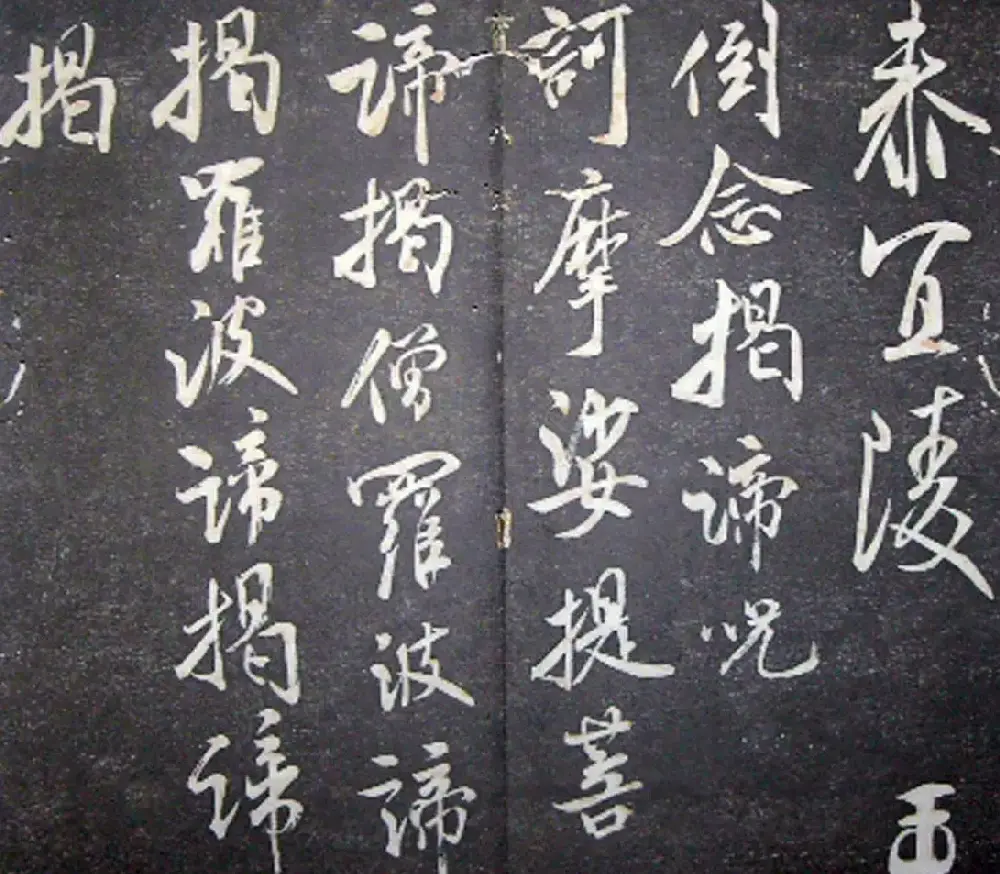 泰宜陵
倒念揭諦呪
訶摩娑提菩
諦揭僧羅波諦
揭羅波諦揭諦
揭